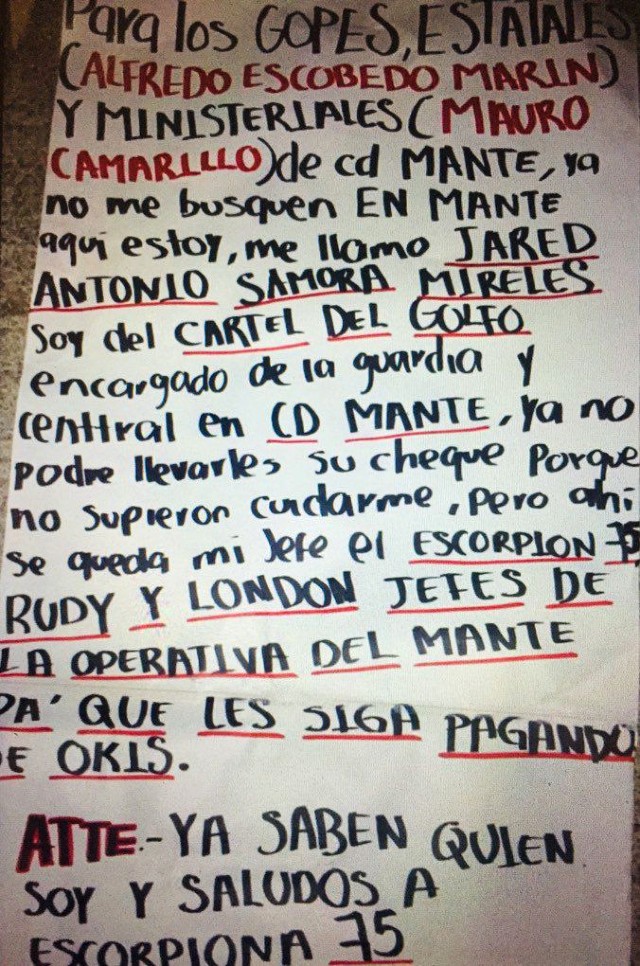 Para los GOPES, ESTATALES
(ALFREDO ESCOBEDO MARIN)
Y MINISTERIALES (MAURO
CAMARILLO) de cd MANTE, ya
no me busquen EN MANTE
aquí estoy, me llamo JARED
ANTONIO SAMORA MIRELES
Soy del CARTEL DEL GOLFO
encargado de la guardia y
centtral en CD MANTE, ya no
podre llevarles su cheque Porque
no supieron cuidarme, pero ahí
se queda mi Jefe el ESCORPION 75
RUDY Y LONDON JEFES DE
LA OPERATIVA DEL MANTE
PA' QUE LES SIGA PAGANDO
E OKIS.
ATTE.- YA SABEN QUIEN
SOY Y SALUDOS A
ESCORPIONA 75